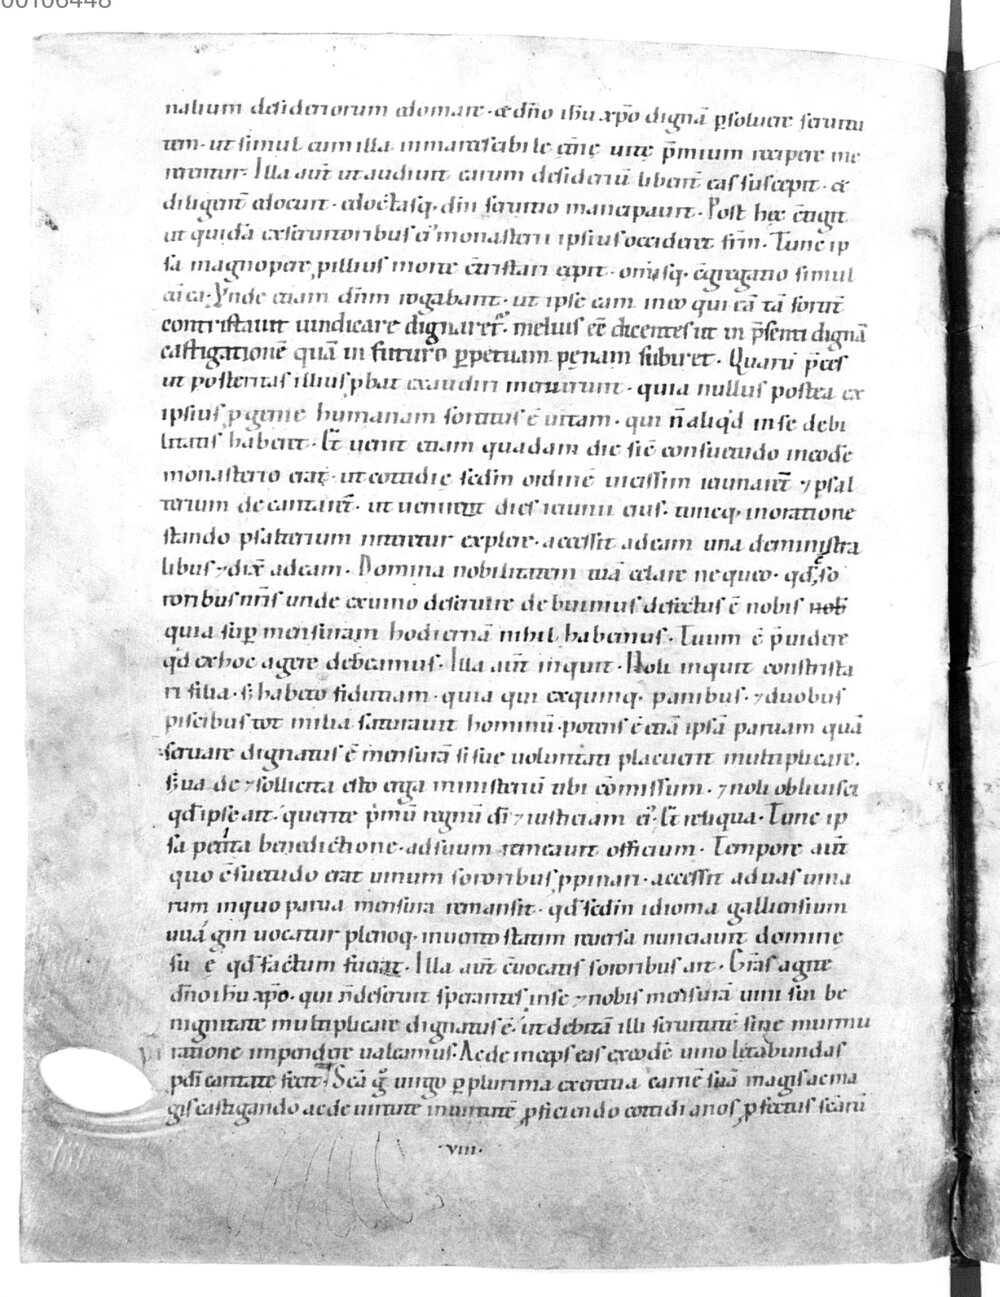 00106448
nalium desideriorum edomare · & dn̄o ihū xp̄o dignā ꝑsoluere seruitu
tem · ut simul cum illa inmarescibile ęt̄nę uitę p̄mium recipere me
rerentur · Illa aut̄ ut audiuit earum desideriū libent̄ eas suscepit · &
diligent̄ edocuit · edoctasq; dīn seruitio mancipauit · Post hęc c̄tigit
ut quidā ex seruitoribus ei᾿ monasterii ipsius occideret fr̄m · Tunc ip
sa magnopere ꝓ illius morte c̄tristari cepit · om̄isq; c̄gregatio simul
cū ea · Vnde etiam dn̄m rogabant · ut ipse eam in eo qui eā tā fortit̄
contristauit uindicare dignaret᾿ · melius ēē dicentes ut in p̄senti dignā
castigationē quā in futuro ꝑpetuam pęnam subiret · Quarū p̄ces
ut posteritas illius ꝓbat exaudiri meruerunt · quia nullus postea ex
ipsius ꝓgenie humanam sortitus ē uitam · qui n̄ aliq̇d in se debi
litatis haberet · Et̄ uenit etiam quadam die sic̄ consuetudo in eodē
monasterio erat · ut cottidie sedm ordinē uicissim ieiunarent̄ ⁊ psal
terium decantarent̄ · ut ueniret dies ieiunii eius · tuncq; in oratione
stando psalterium niteretur explere · accessit ad eam una de ministra
libus ⁊ dix̄ ad eam · Domina nobilitatem tuā celare nequeo · qd̄ so
roribus nr̄is unde ex uino deseruire debuimus defectus ē nobis nob̄
quia suꝑ mensuram hodiernā nihil habemus · Tuum ē p̄uidere
qd̄ ex hoc agere debeamus · Illa aut̄ inquit · Noli inquit constrista
ri filia · s; habeto fidutiam · quia qui ex quinq; panibus · ⁊ duobus
piscibus tot milia saturauit hominū · potens ē etiā ipsā paruam quā
seruare dignatus ē mensurā si sue uoluntati placuerit multiplicare.
S; uade ⁊ sollicita esto erga ministeriū tibi cōmissum · ⁊ noli obliuisci
qd̄ ipse ait · querite p̄mū regnū dī ⁊ iusticiam ei᾿ · Et̄ reliqua · Tunc ip
sa petita benedictione · ad suum remeauit officium · Tempore aut̄
quo c̄suetudo erat uinum sororibus ꝓpinari · accessit ad uas uina
rum in quo parua mensura remansit · qd̄ sedm idioma galliensium
uuágin uocatur plenoq; inuento statim reuersa nunciauit domine
suę qd̄ factum fuerat · Illa aut̄ c̄uocatis sororibus ait · Gr̄as agite
dn̄o ihū xp̄o · qui n̄ deseruit sperantes in se ⁊ nobis mensurā uini sui be
nignitate multiplicare dignatus ē · ut debitā illi seruitutē sine murmu
ratione impendere ualeamus · Ac deinceps eas ex eodē uino letabundas
ꝑdī caritate fecit · Sc̄a g̊ uirgo ꝑ plurima exercitia carnē suā magis ac ma
gis castigando ac de uirtute in uirtutē ꝓficiendo cottidianos ꝓfectus sc̄arū
· viii ·